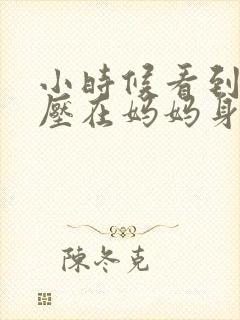 小時候看到
壓在媽媽身
陳冬克